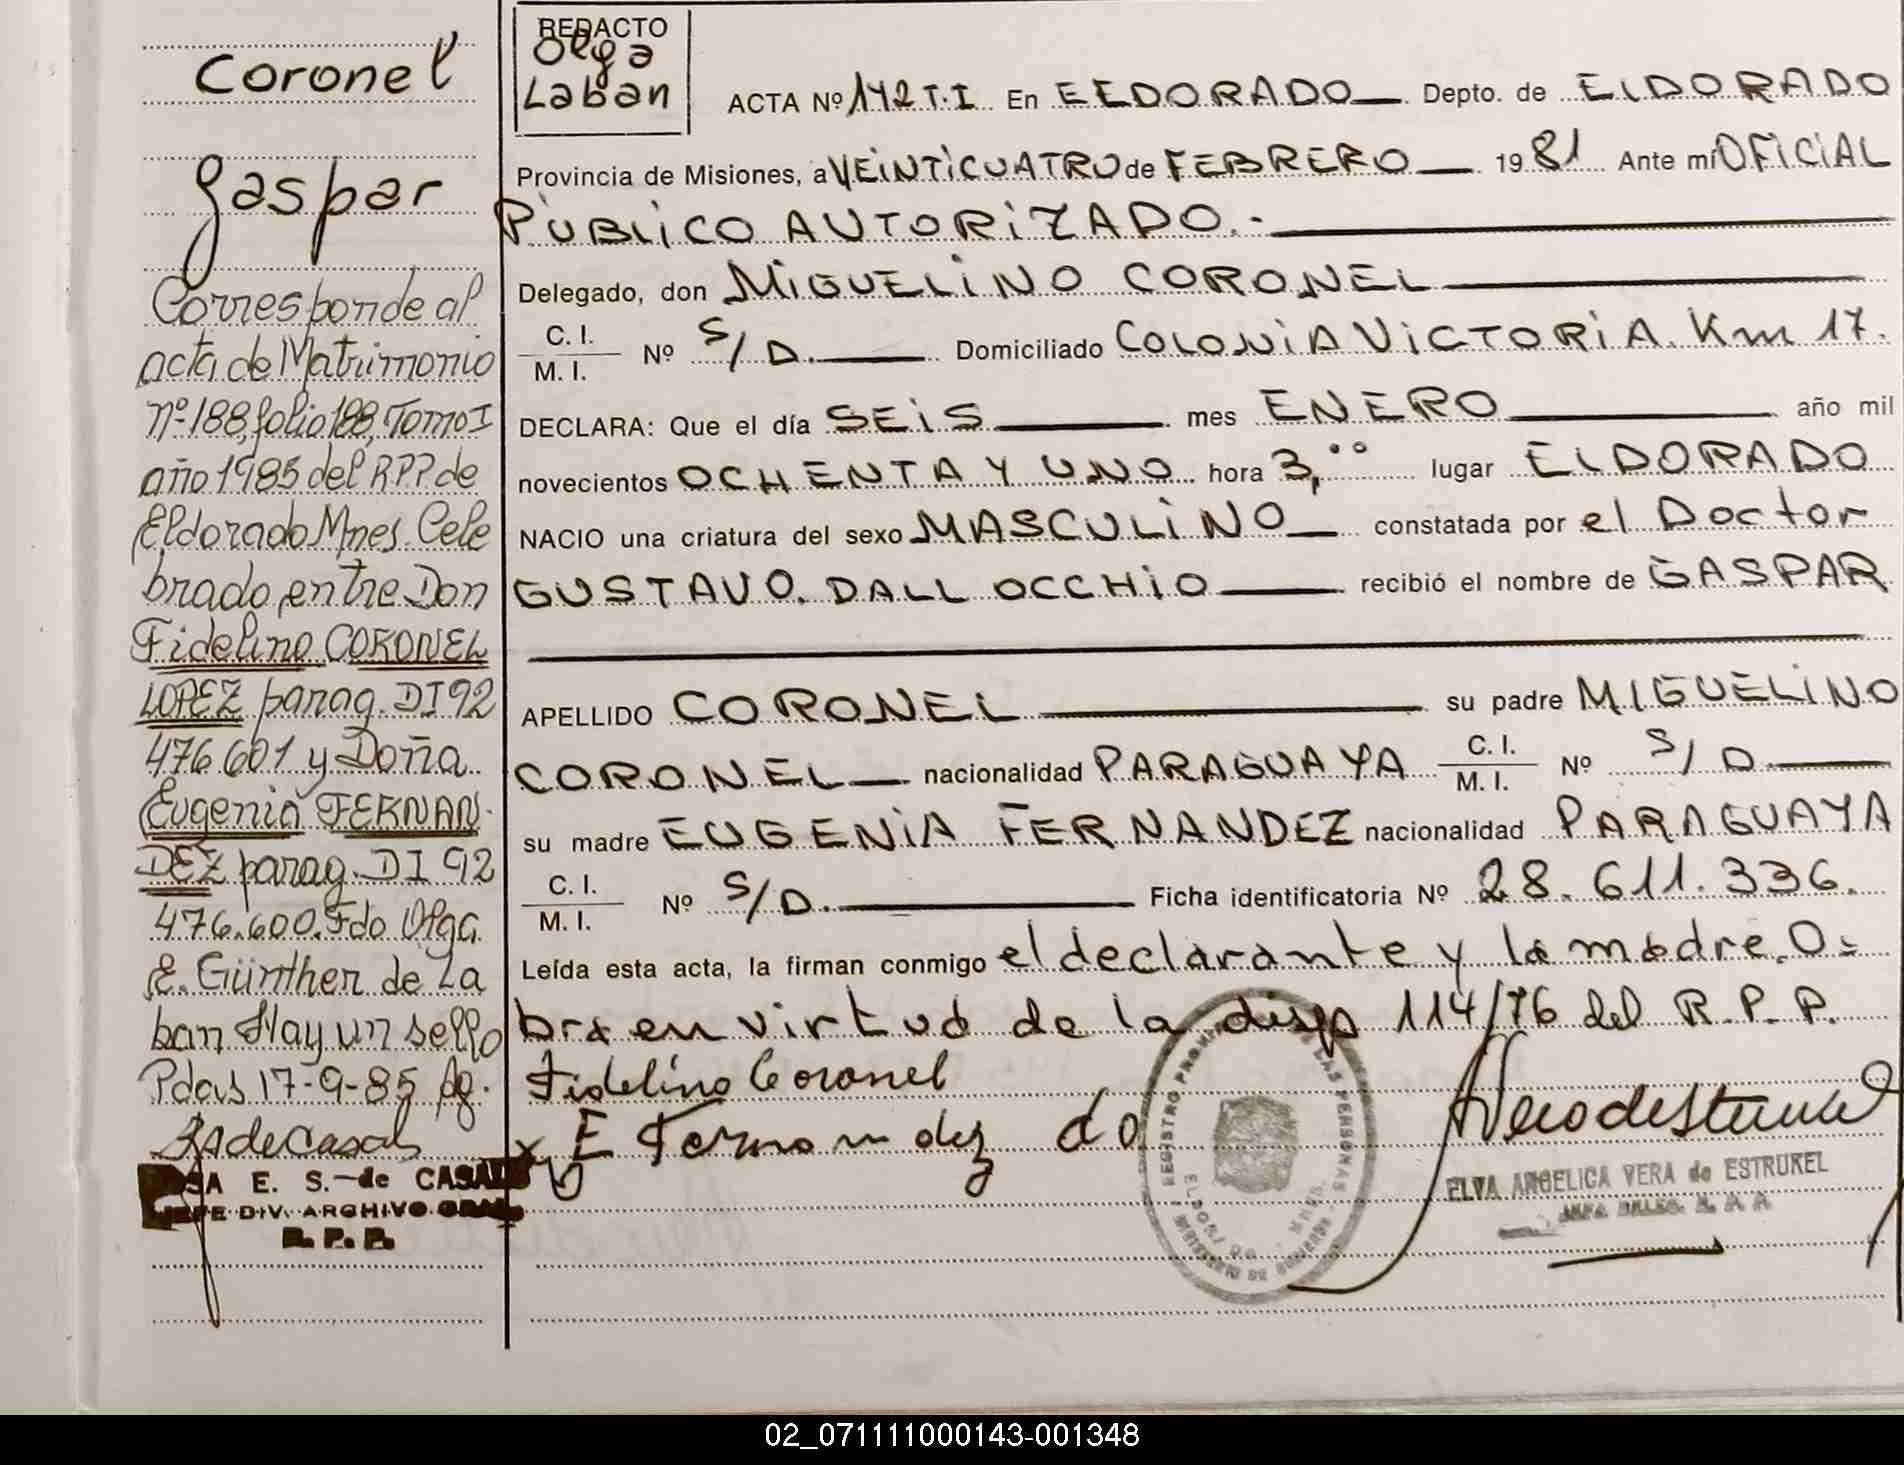 Coronel
Gaspar
Corresponde al
acta de Matrimonio
nº 188, folio 188, Tomo I
año 1985 del RPP de
Eldorado Mnes. Cele
brado entre Don
Fidelino CORONEL
LOPEZ parag. DI 92
476.601 y Doña
Eugenia FERNAN-
DEZ parag. DI 92
476.600. Fdo Olga
E. Günther de La
ban Hay un sello
Pdas 17-9-85
E. S.-de CASALS
DIV. ARCHIVO GRAL
R. P. P.
REDACTO
Olga
Laban
ACTA Nº 142 T.I En ELDORADO Depto. de ELDORADO
Provincia de Misiones, a VEINTICUATRO de FEBRERO 1981 Ante mí OFICIAL
PÚBLICO AUTORIZADO.-
Delegado, don MIGUELINO CORONEL
C. I.
M. I. Nº S/D. Domiciliado COLONIA VICTORIA. Km 17.
DECLARA: Que el día SEIS mes ENERO año mil
novecientos OCHENTA Y UNO hora 3,°° lugar ELDORADO
NACIO una criatura del sexo MASCULINO constatada por el Doctor
GUSTAVO. DALL OCCHIO recibió el nombre de GASPAR
APELLIDO CORONEL su padre MIGUELINO
CORONEL nacionalidad PARAGUAYA C. I.
M. I. Nº S/D
su madre EUGENIA FERNANDEZ nacionalidad PARAGUAYA
C. I.
M. I. Nº S/D. Ficha identificatoria Nº 28.611.336.
Leída esta acta, la firman conmigo el declarante y la madre. O=
bra en virtud de la disp 114/76 del R.P.P.
Fidelino Coronel
x E Fernandez do
ELVA ANGELICA VERA de ESTRUKEL
02_071111000143-001348